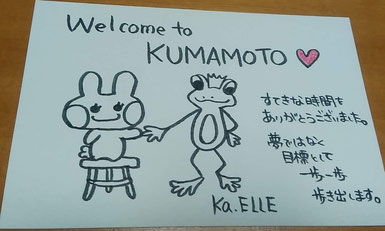 Welcome to
KUMAMOTO
すてきな時間を
ありがとうございました。
夢ではなく
目標として
一歩一歩
歩き出します。
Ka.ELLE